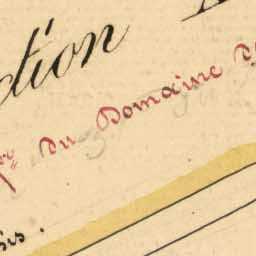 ction
du Domaine d
sis.